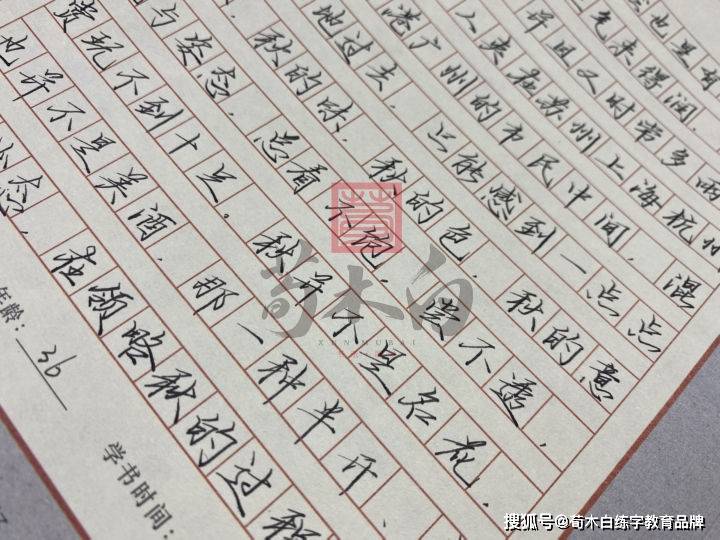 也是有
气来得润，
并且又时常多雨
人夹在苏州上海杭州
港广州的市民中间，混
地过去，只能感到一点点
秋的味，秋的色，秋的意
与姿态，总看不饱，尝不透，
赏玩不到十足。秋并不是名花，
也并不是美酒，那一种半开、
状态，在领略秋的过程
年龄：36
学书时间：
荀木白
XUNMUBAI
搜狐号@荀木白练字教育品牌